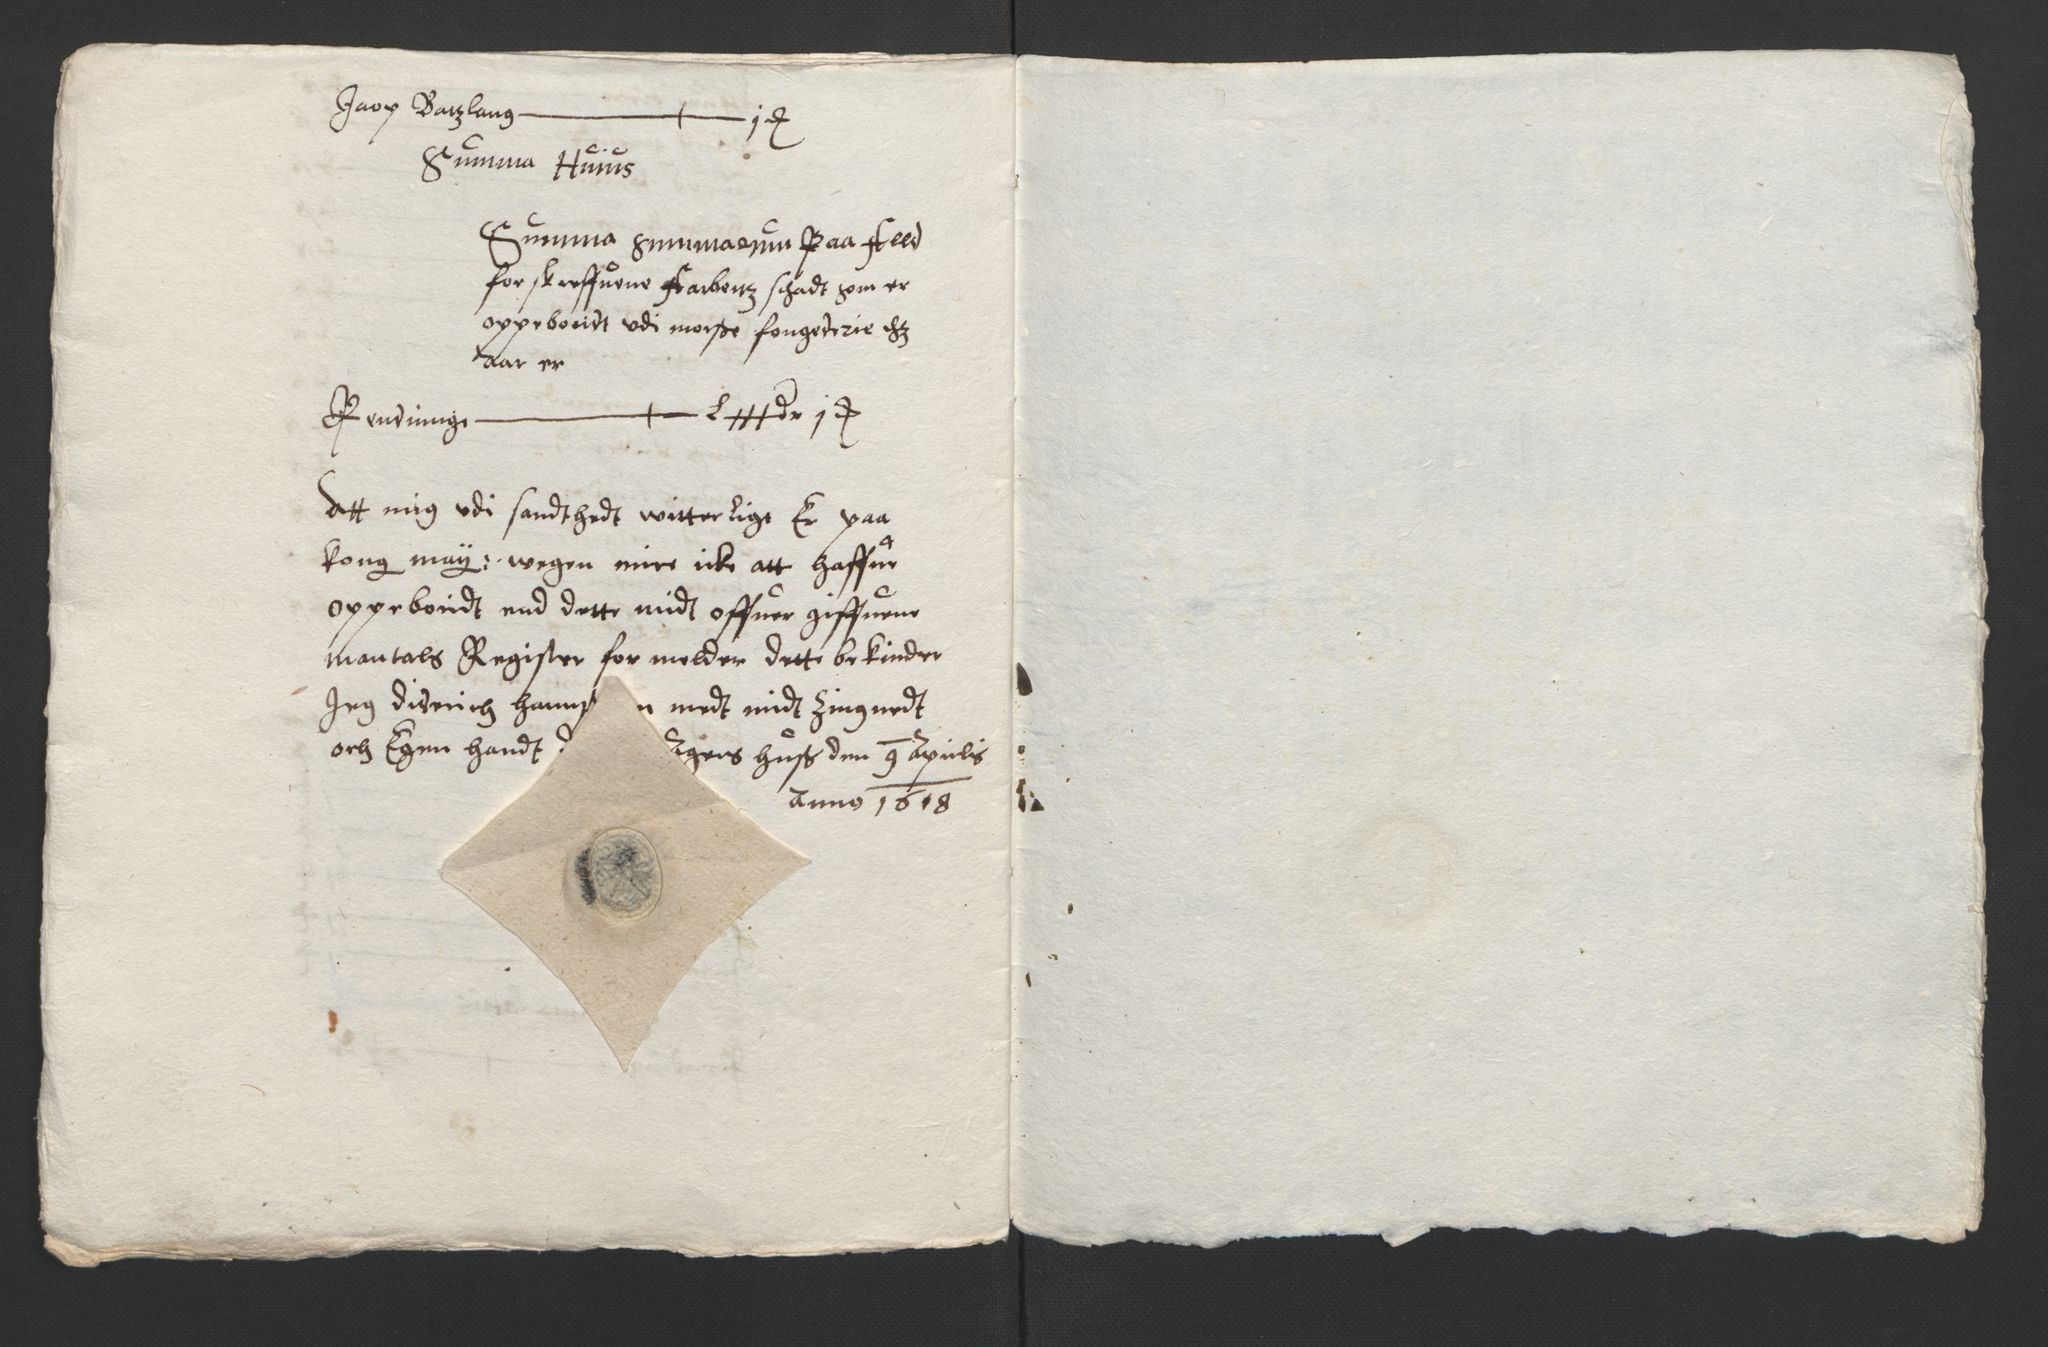 Jacop Batzlaug — 1 d
Summa Huius
Summa summarum Paa All
for skreffuene Arbeitz schadt som er
oppeboridt vdi morsse fougederie dtz
aar er
Penduinge — 1 d
Att mig vdi sandthedt witterlige Er paa
kong may: wegen mire icke att haffue
oppeboridt end dette midt offuer giffuene
mantals Register for melder dette bekinder
Jeg diderich medt midt Zingnedt
och Egen handt huss den 9 Aprilis
Anno 1618